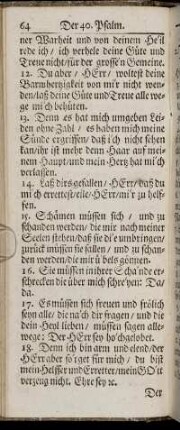 64 Der 40. Psalm.
ner Warheit und von deinem Heil
rede ich / ich verhele deine Güte und
Treue nicht / für der grossen Gemeine.
12. Du aber / HErr / woltest deine
Barmhertzigkeit von mir nicht wen-
den / laß deine Güte und Treue alle we-
ge mich behüten.
13. Denn es hat mich umgeben Lei-
den ohne Zahl / es haben mich meine
Sünde ergriffen / daß ich nicht sehen
kan / ihr ist mehr denn Haar auf mei-
nem Haupt / und mein Hertz hat mich
verlassen.
14. Laß dirs gefallen / HErr / daß du
mich errettest / eile / HErr / mir zu helf-
fen.
15. Schämen müssen sich / und zu
schanden werden / die mir nach meiner
Seelen stehen / daß sie die umbringen /
zurück müssen sie fallen / und zu schan-
den werden / die mir übels gönnen.
16. Sie müssen in ihrer Schande er-
schrecken die über mich schreyen: Da /
da.
17. Es müssen sich freuen und frölich
seyn alle / die nach dir fragen / und die
dein Heyl lieben / müssen sagen alle-
wege: Der HErr sey hochgelobet.
18. Denn ich bin arm und elend / der
HErr aber sorget für mich / du bist
mein Helffer und Erretter / mein GOtt
verzeug nicht. Ehre sey ꝛc.
Der